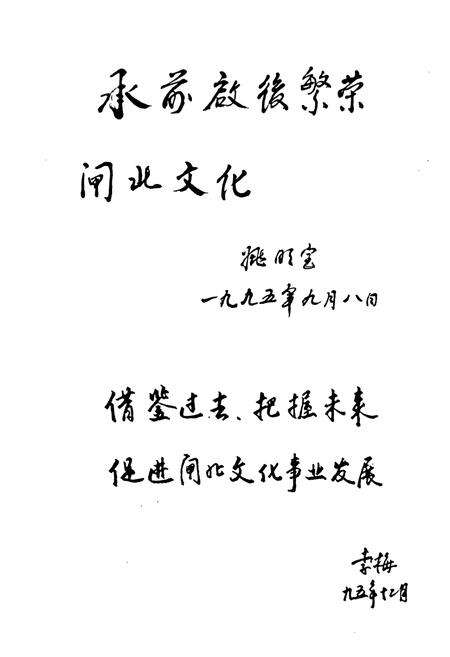 承前啟後繁荣
闸北文化
明宝
一九九五年九月八日
借鉴过去、把握未来
促进闸北文化事业发展
李梅
九五年十二月